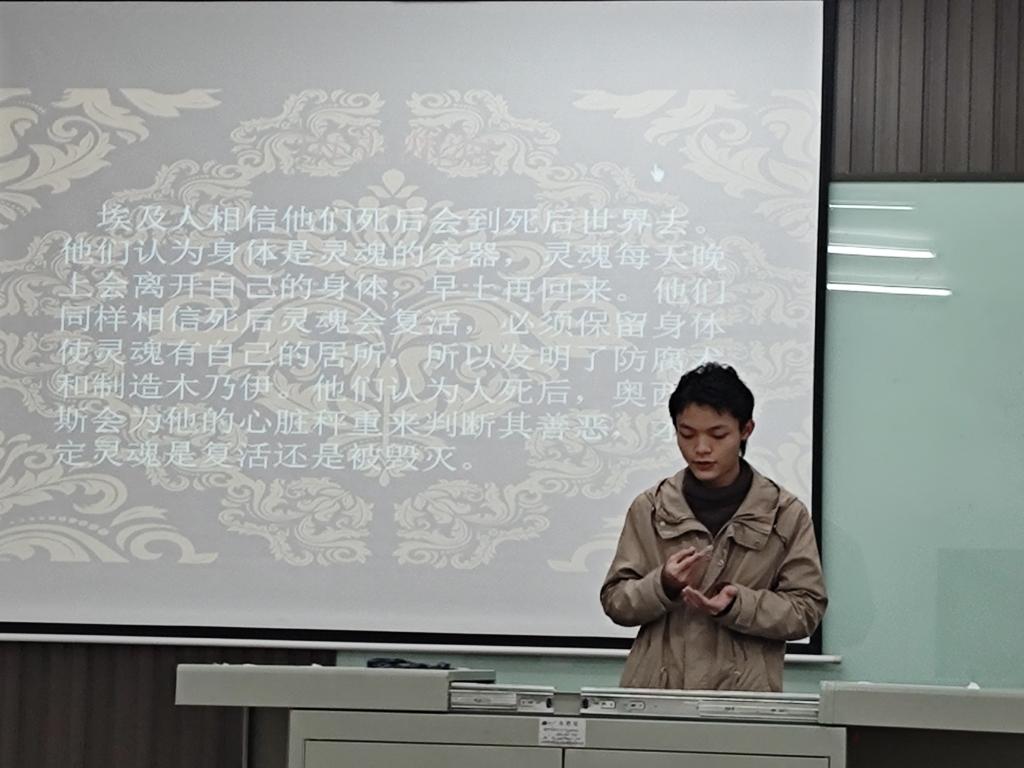 埃及人相信他们死后会到死后世界去。
他们认为身体是灵魂的容器，灵魂每天晚
上会离开自己的身体，早上再回来。他们
同样相信死后灵魂会复活，必须保留身体
使灵魂有自己的居所，所以发明了防腐
和制造木乃伊。他们认为人死后，奥西
斯会为他的心脏秤重来判断其善恶，
定灵魂是复活还是被毁灭。